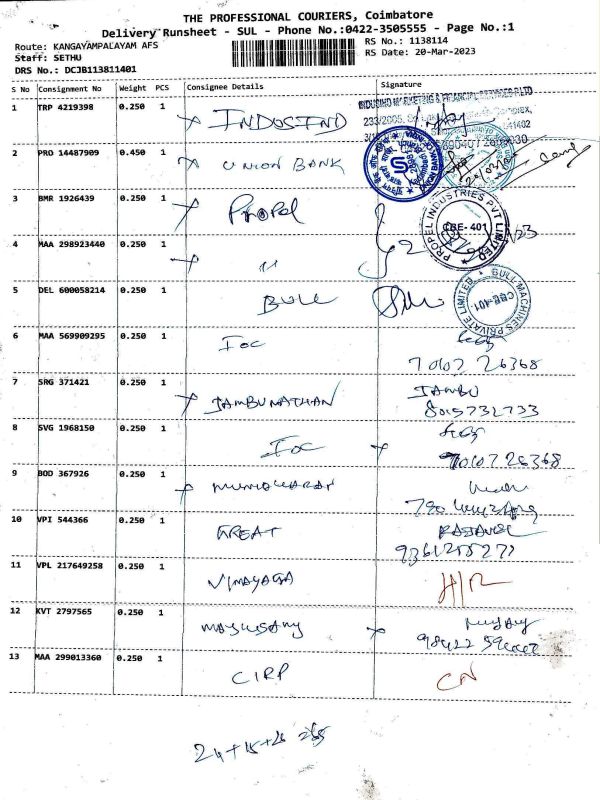 THE PROFESSIONAL COURIERS, Coimbatore
Delivery Runsheet - SUL - Phone No.:0422-3505555 - Page No.:1
Route: KANGAYAMPALAYAM AFS
RS No.: 1138114
Staff: SETHU
RS Date: 20-Mar-2023
DRS No.: DCJB113811401
S No Consignment No Weight PCS Consignee Details Signature
1 TRP 4219398 0.250 1 INDUSIND
2 PRO 14487909 0.450 1 UNION BANK
3 BMR 1926439 0.250 1 Propel
PROPEL INDUSTRIES PVT LIMITED
CBE- 401
4 MAA 298923440 0.250 1 " 2
5 DEL 600058214 0.250 1 BULL
BULL MACHINES PRIVATE LIMITED
CBE-401
6 MAA 569909295 0.250 1 IOC
26368
7 SRG 371421 0.250 1 JAMBUNATHAN JAMBU
8015732733
8 SVG 1968150 0.250 1 IOC
26368
9 BOD 367926 0.250 1
10 VPI 544366 0.250 1 GREAT
11 VPL 217649258 0.250 1 VINAYAGA H/R
12 KVT 2797565 0.250 1
13 MAA 299013360 0.250 1 CIRP CN